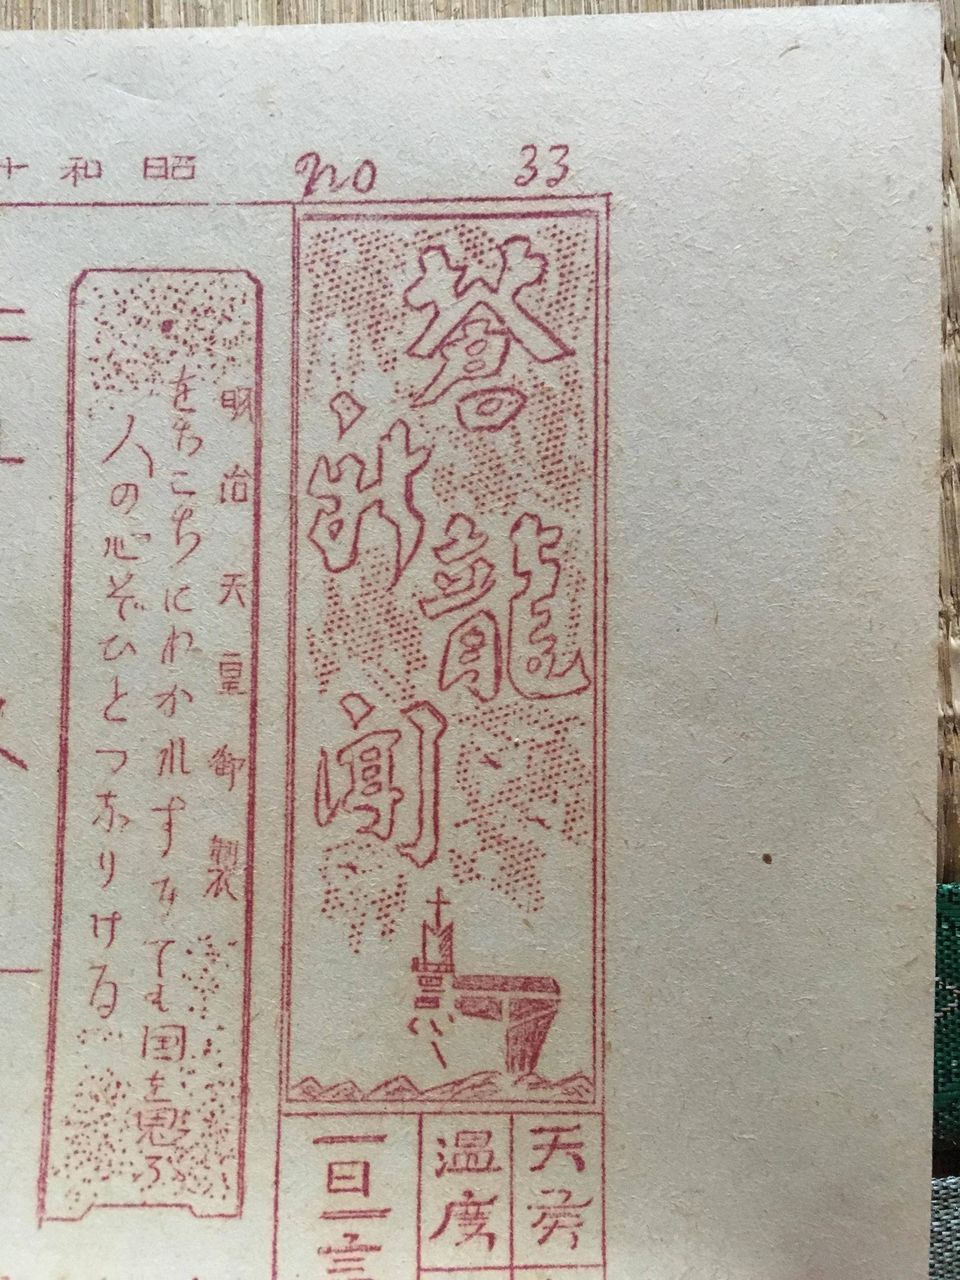 no 33
昭和十
蒼龍
新聞
天
温度
一日一言
明治天皇御製
をちこちにわかれすみても国を思ふ
人の心ぞひとつなりける